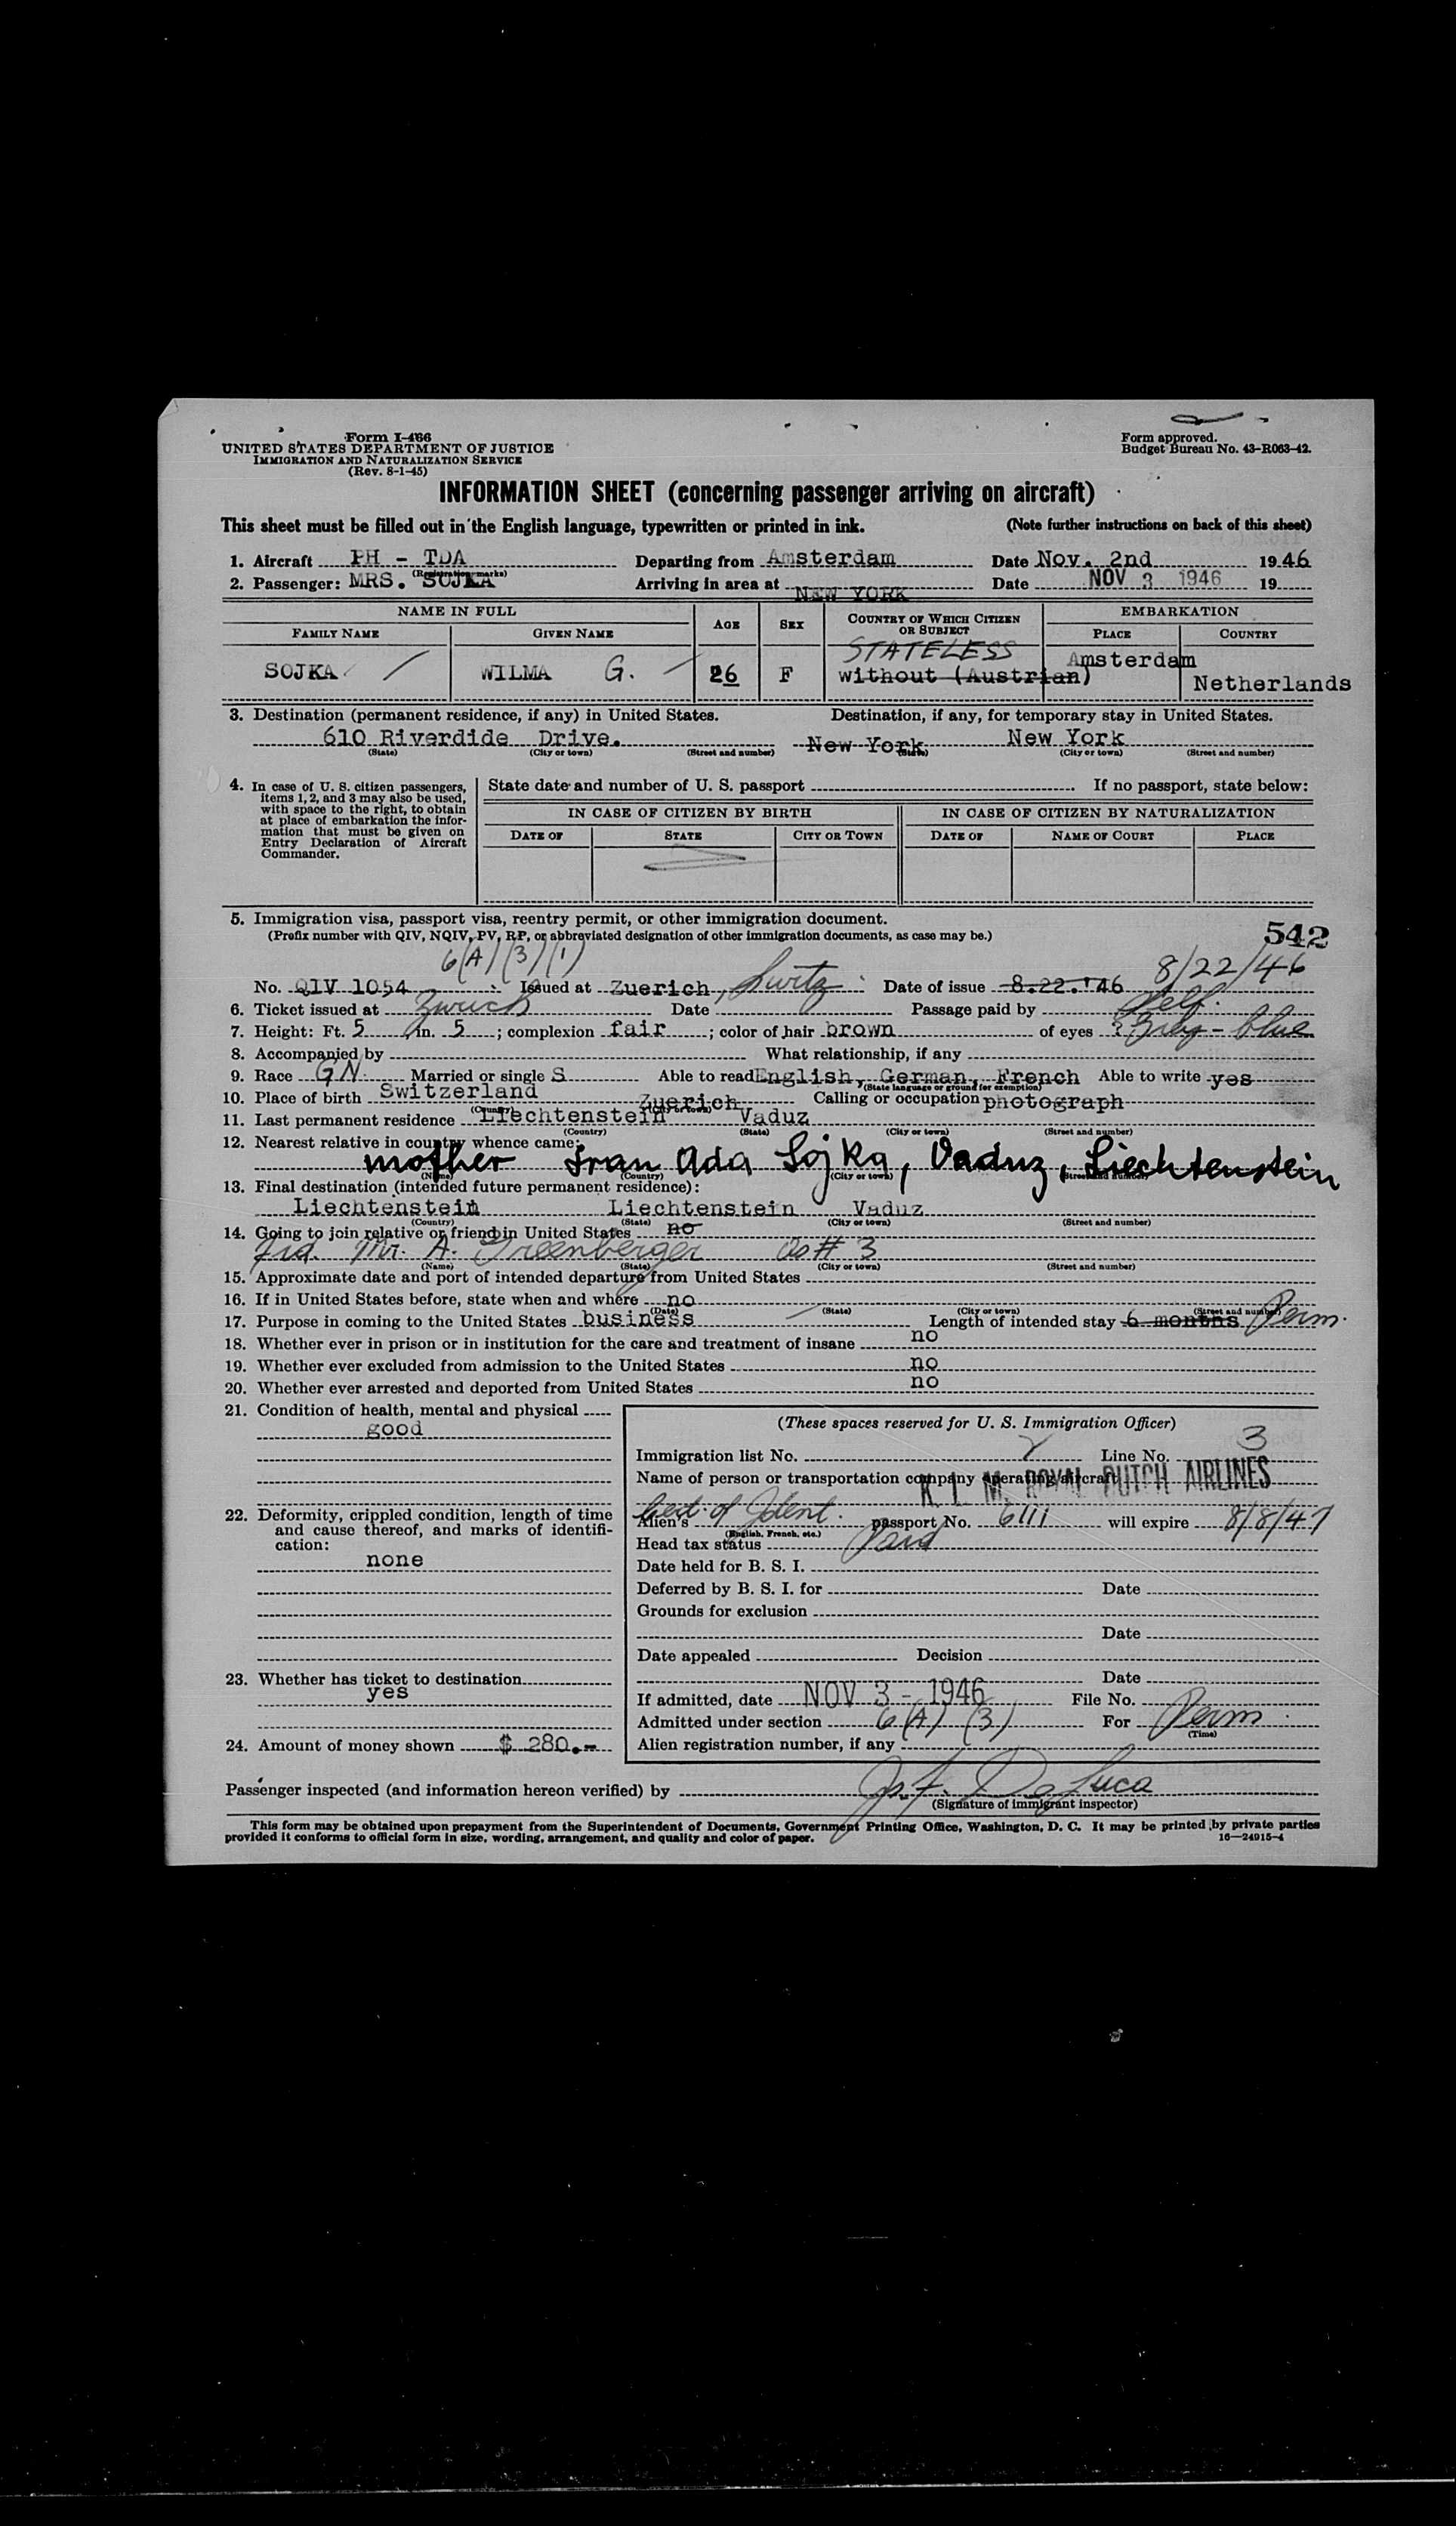 Form I-466
UNITED STATES DEPARTMENT OF JUSTICE
IMMIGRATION AND NATURALIZATION SERVICE
(Rev. 8-1-45)
Form approved.
Budget Bureau No. 43-R063-42.
INFORMATION SHEET (concerning passenger arriving on aircraft)
This sheet must be filled out in the English language, typewritten or printed in ink. (Note further instructions on back of this sheet)
1. Aircraft PH - TDA (Registration marks) Departing from Amsterdam Date Nov. 2nd 1946
2. Passenger: MRS. SOJKA Arriving in area at NEW YORK Date NOV 3 1946 19
NAME IN FULL AGE SEX COUNTRY OF WHICH CITIZEN OR SUBJECT EMBARKATION
FAMILY NAME GIVEN NAME PLACE COUNTRY
STATELESS
SOJKA WILMA G. 26 F without (Austrian) Amsterdam Netherlands
3. Destination (permanent residence, if any) in United States. Destination, if any, for temporary stay in United States.
610 Riverdide Drive. New York New York
(State) (City or town) (Street and number) (State) (City or town) (Street and number)
4. In case of U. S. citizen passengers, items 1, 2, and 3 may also be used, with space to the right, to obtain at place of embarkation the information that must be given on Entry Declaration of Aircraft Commander.
State date and number of U. S. passport If no passport, state below:
IN CASE OF CITIZEN BY BIRTH IN CASE OF CITIZEN BY NATURALIZATION
DATE OF STATE CITY OR TOWN DATE OF NAME OF COURT PLACE
5. Immigration visa, passport visa, reentry permit, or other immigration document.
(Prefix number with QIV, NQIV, PV, RP, or abbreviated designation of other immigration documents, as case may be.)
542
6(A)(3)(1) 8/22/46
No. QIV 1054 Issued at Zuerich, Switz Date of issue 8.22.'46
6. Ticket issued at Zurich Date Passage paid by Self.
7. Height: Ft. 5 in. 5 ; complexion fair ; color of hair brown of eyes ? Grey - blue
8. Accompanied by What relationship, if any
9. Race GN. Married or single S Able to read English, German, French Able to write yes
(State language or ground for exemption)
10. Place of birth Switzerland Zuerich Calling or occupation photograph
(Country) (City or town)
11. Last permanent residence Liechtenstein Vaduz
(Country) (State) (City or town) (Street and number)
12. Nearest relative in country whence came:
mother Frau Ada Sojka, Vaduz, Liechtenstein
(Name) (Country) (City or town) (Street and number)
13. Final destination (intended future permanent residence):
Liechtenstein Liechtenstein Vaduz
(Country) (State) (City or town) (Street and number)
14. Going to join relative or friend in United States no
Frd. Mr. A. Greenberger as # 3
(Name) (State) (City or town) (Street and number)
15. Approximate date and port of intended departure from United States
16. If in United States before, state when and where no
(Date) (State) (City or town) (Street and number)
17. Purpose in coming to the United States business Length of intended stay 6 months Perm.
18. Whether ever in prison or in institution for the care and treatment of insane no
19. Whether ever excluded from admission to the United States no
20. Whether ever arrested and deported from United States no
21. Condition of health, mental and physical
good
22. Deformity, crippled condition, length of time and cause thereof, and marks of identification:
none
23. Whether has ticket to destination
yes
24. Amount of money shown $ 280.-
(These spaces reserved for U. S. Immigration Officer)
Immigration list No. Line No. 3
Name of person or transportation company operating aircraft
K. L. M. ROYAL DUTCH AIRLINES
Cert. of Ident.
Alien's passport No. 6111 will expire 8/8/47
(English, French, etc.)
Head tax status Paid
Date held for B. S. I.
Deferred by B. S. I. for Date
Grounds for exclusion
Date
Date appealed Decision
Date
If admitted, date NOV 3 - 1946 File No.
Admitted under section 6(A) (3) For Perm.
(Time)
Alien registration number, if any
Passenger inspected (and information hereon verified) by Jos. F. De Luca
(Signature of immigrant inspector)
This form may be obtained upon prepayment from the Superintendent of Documents, Government Printing Office, Washington, D. C. It may be printed by private parties
provided it conforms to official form in size, wording, arrangement, and quality and color of paper. 16—24915-4